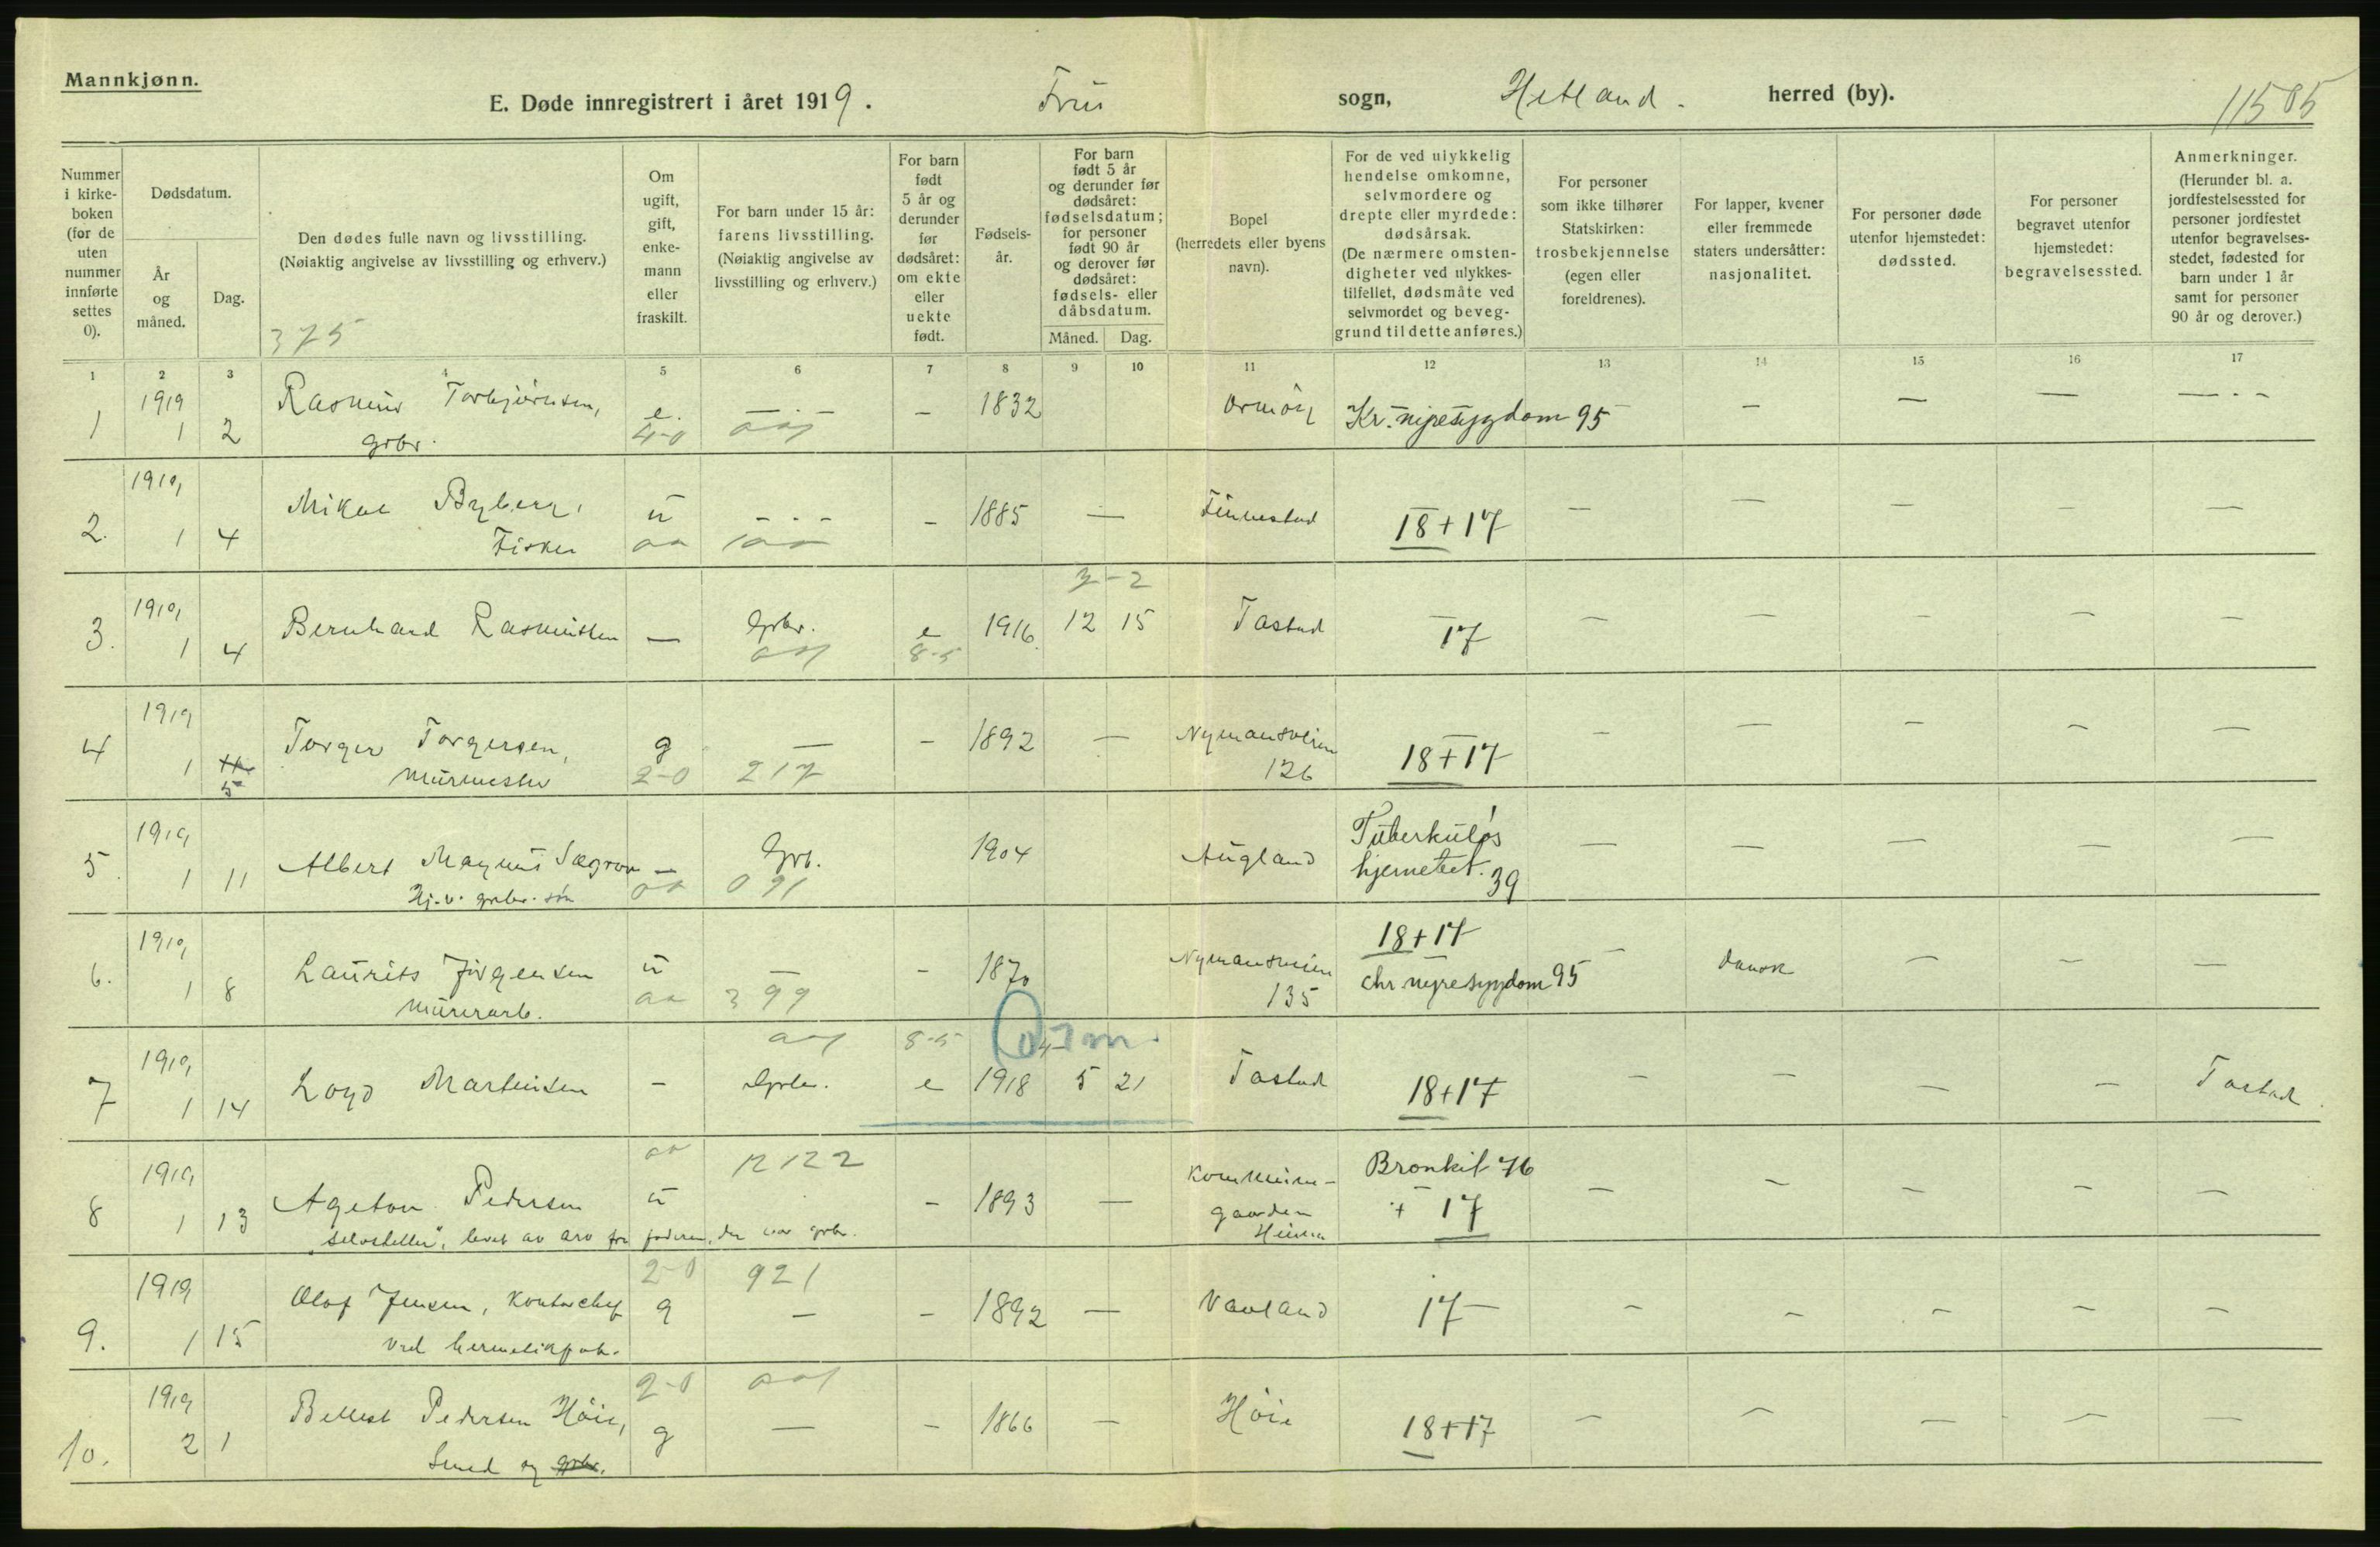 Mannkjønn.
E. Døde innregistrert i året 1919. Frue sogn, Hetland. herred (by).
11585
Nummer i kirke-boken (for de uten nummer innførte settes 0).
Dødsdatum.
År og måned.
Dag.
Den dødes fulle navn og livsstilling.
(Nøiaktig angivelse av livsstilling og erhverv.)
375
Om ugift, gift, enke-mann eller fraskilt.
For barn under 15 år: farens livsstilling.
(Nøiaktig angivelse av livsstilling og erhverv.)
For barn født 5 år og derunder før dødsåret: om ekte eller uekte født.
Fødsels-år.
For barn født 5 år og derunder før dødsåret: fødselsdatum; for personer født 90 år og derover før dødsåret: fødsels- eller dåbsdatum.
Måned. Dag.
Bopel (herredets eller byens navn).
For de ved ulykkelig hendelse omkomne, selvmordere og drepte eller myrdede: dødsårsak.
(De nærmere omsten-digheter ved ulykkes-tilfellet, dødsmåte ved selvmordet og beveg-grund til dette anføres.)
For personer som ikke tilhører Statskirken: trosbekjennelse (egen eller foreldrenes).
For lapper, kvener eller fremmede staters undersåtter: nasjonalitet.
For personer døde utenfor hjemstedet: dødssted.
For personer begravet utenfor hjemstedet: begravelsessted.
Anmerkninger.
(Herunder bl. a. jordfestelsessted for personer jordfestet utenfor begravelses-stedet, fødested for barn under 1 år samt for personer 90 år og derover.)
1 2 3 4 5 6 7 8 9 10 11 12 13 14 15 16 17
1 1919 1 2 Rasmus Torbjørnsen, e. — – 1832 Ormøy Kr. nyresygdom 95 — — — —
grbr. 4-0
2. 1919 1 4 Mikal Byberg, u — – 1885 — Finnestad 18+17 — — — — —
Fisker
3-2
3. 1919 1 4 Bernhard Rasmussen — Grbr. e 1916 12 15 Tastad 17 — — — — —
8-5
4 1919 1 5 Torger Torgersen, g — – 1892 — Nymansveien 126 18+17 — — — — —
murmester 2-0 217
5. 1919 1 11 Albert Magnus — Grb. 1904 Augland Tuberkuløs hjernebet. 39 — — — — —
Hj.v. grbr. søn 091
6. 1919 1 8 Laurits Jørgensen u — – 1870 Nymansveien 135 18+17 chr. nyresygdom 95 — dansk — — —
murerarb. 399
8-5
7 1919 1 14 Loyd Martinsen – Grbr. e 1918 5 21 Tastad 18+17 — — — — Tastad
12122
8 1919 1 13 Ageton Pedersen u – 1893 — Kommune-gaarden Bronkit 76 + 17 — — — — —
"selvsteller", levet av arv fra faderen, der var grbr.
2-0 921
9. 1919 1 15 Olaf Jensen, Kontorchef g — – 1892 — Vauland 17 — — — — —
ved hermetikfab.
2-0
10. 1919 2 1 Pedersen Høie, g — – 1866 — Høie 18+17 — — — — —
Smed og grbr.